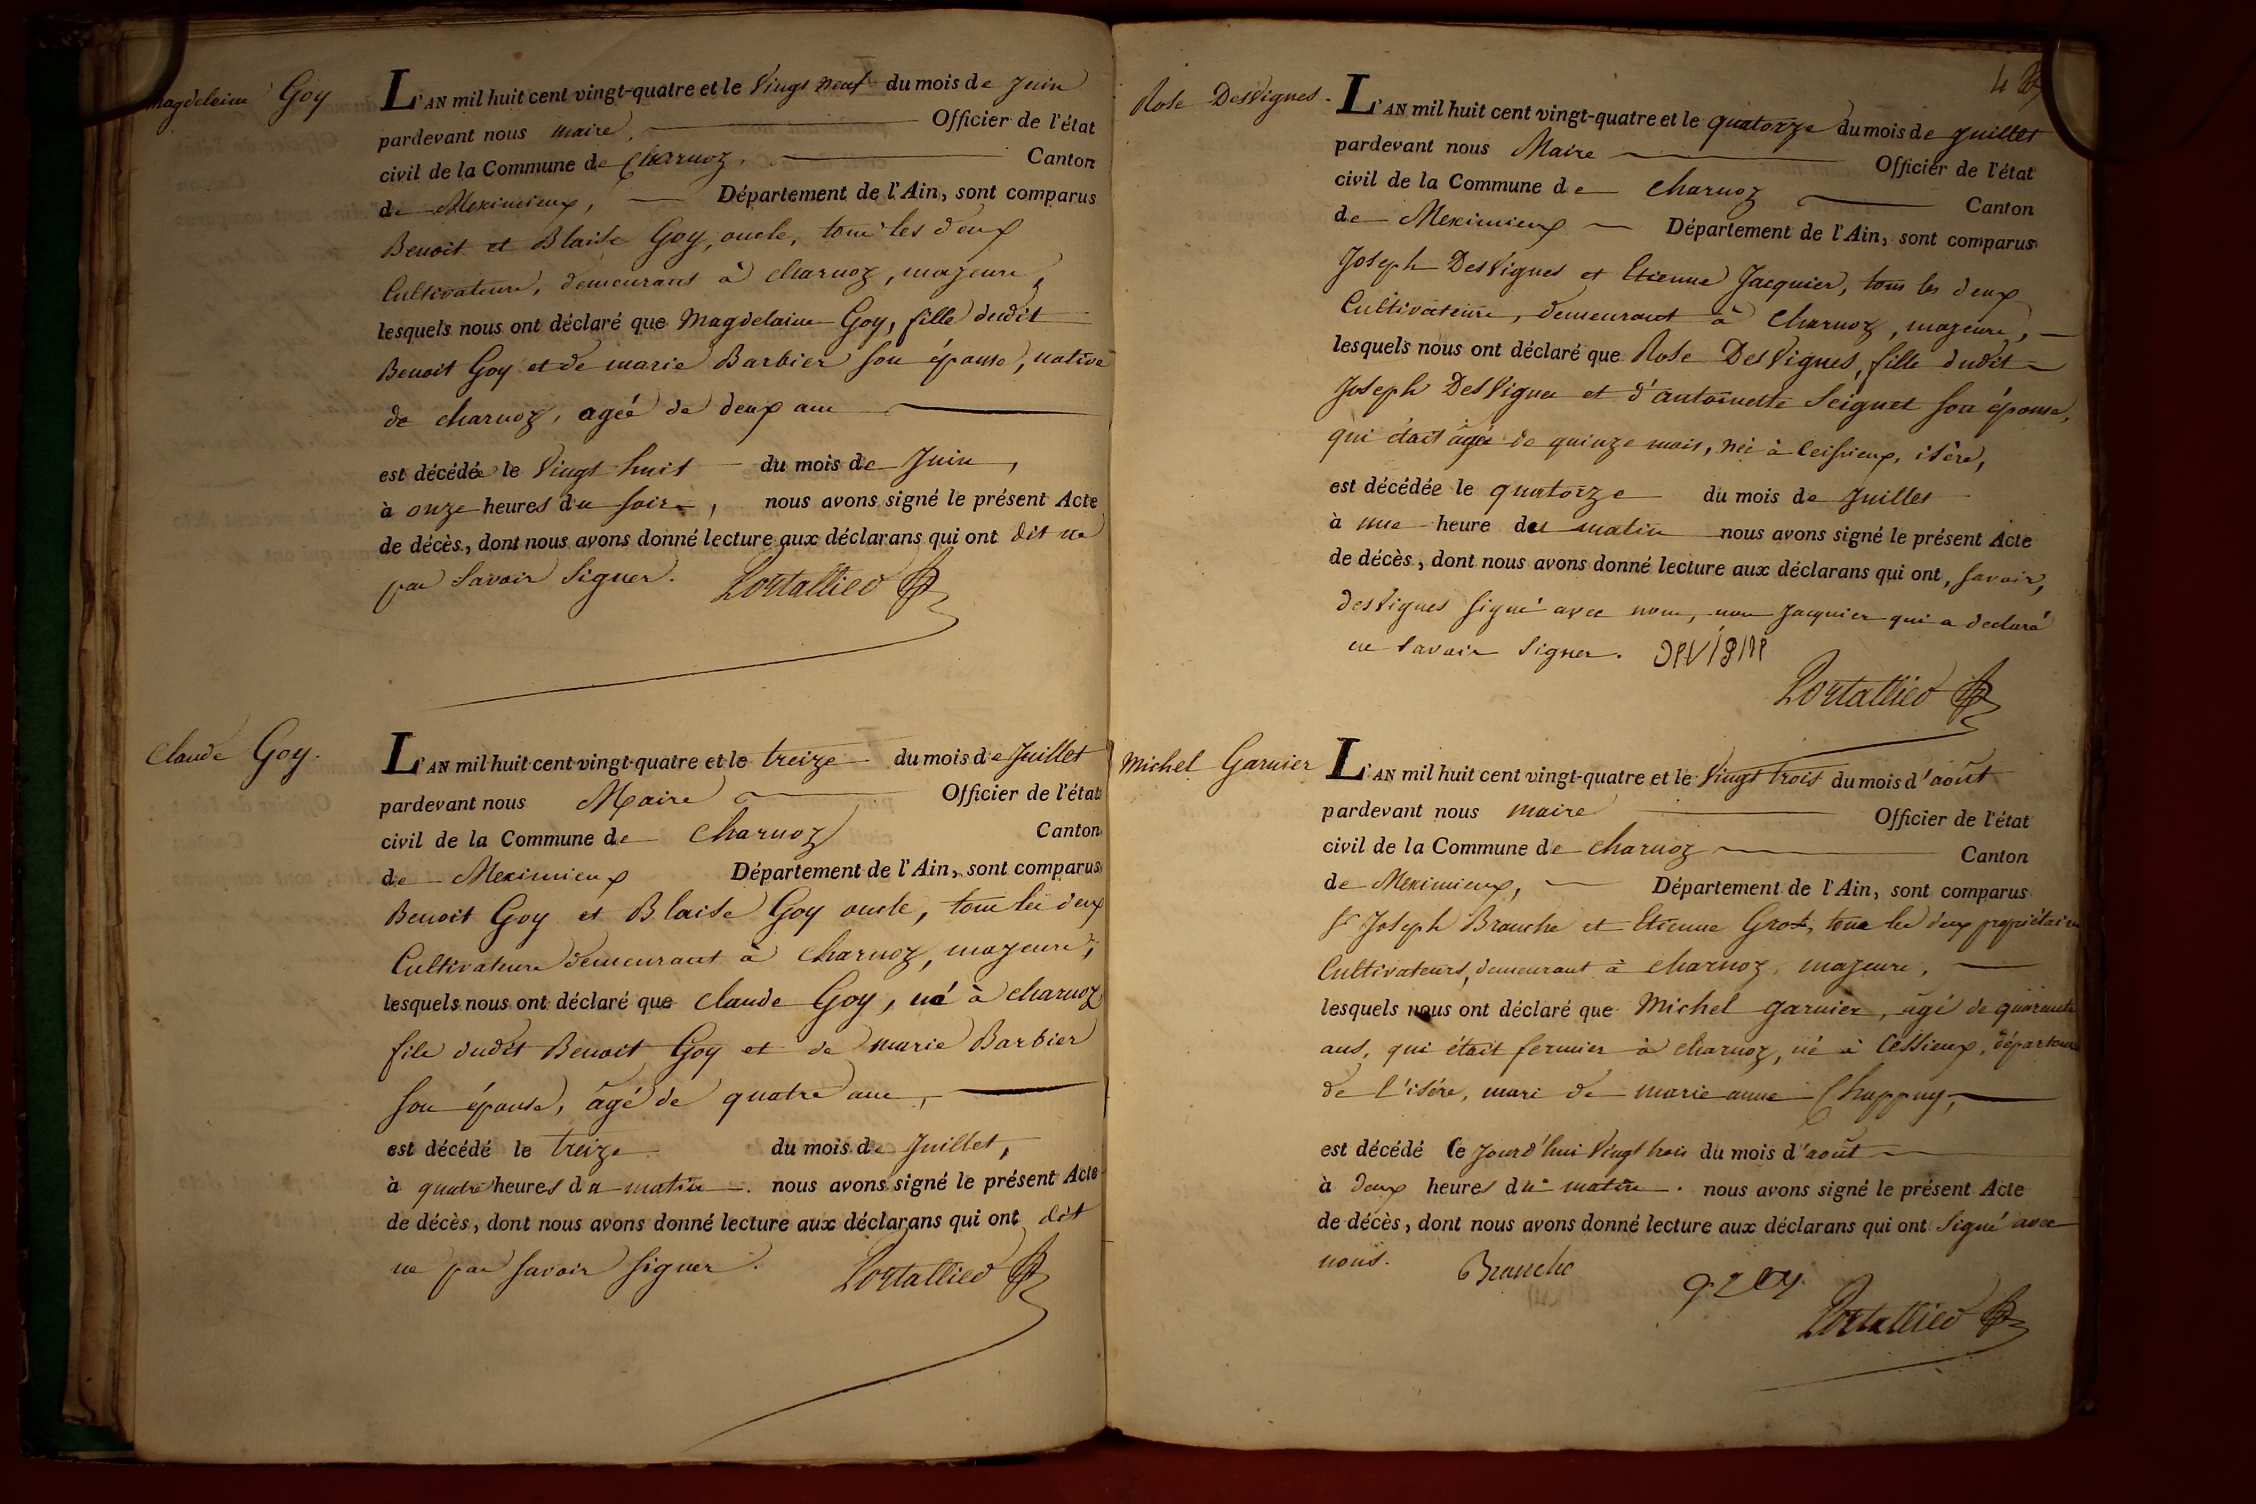 Magdeleine Goy
L'AN mil huit cent vingt-quatre et le Vingt neuf du mois de Juin
pardevant nous maire, Officier de l'état
civil de la Commune de Charnoz, Canton
de Meximieux, Département de l'Ain, sont comparus
Benoit et Blaise Goy, oncle, tous les deux
Cultivateurs, demeurans à charnoz, majeurs,
lesquels nous ont déclaré que Magdelaine Goy, fille dudit
Benoit Goy et de marie Barbier son épouse, native
de charnoz, agée de deux ans
est décédée le Vingt huit du mois de Juin,
à onze heures du soir, nous avons signé le présent Acte
de décès, dont nous avons donné lecture aux déclarans qui ont dit ne
pas Savoir Signer. Portallier
Claude Goy.
L'AN mil huit cent vingt-quatre et le treize du mois de Juillet
pardevant nous Maire Officier de l'état
civil de la Commune de Charnoz Canton
de Meximieux Département de l'Ain, sont comparus
Benoit Goy et Blaise Goy oncle, tous les deux
Cultivateurs demeurant à Charnoz, majeurs,
lesquels nous ont déclaré que Claude Goy, né à charnoz
fils dudit Benoit Goy et de marie Barbier
son épouse, âgé de quatre ans,
est décédé le treize du mois de Juillet,
à quatre heures du matin. nous avons signé le présent Acte
de décès, dont nous avons donné lecture aux déclarans qui ont dit
ne pas savoir signer. Portallier
4
Rose DesVignes.
L'AN mil huit cent vingt-quatre et le quatorze du mois de Juillet
pardevant nous Maire Officier de l'état
civil de la Commune de Charnoz Canton
de Meximieux Département de l'Ain, sont comparus
Joseph DesVignes et Etienne Jacquier, tous les deux
Cultivateurs, demeurant à Charnoz, majeurs,
lesquels nous ont déclaré que Rose DesVignes, fille dudit
Joseph DesVignes et d'antoinette Seignet son épouse,
qui était âgée de quinze mois, née à Ceissieux, isère,
est décédée le quatorze du mois de Juillet
à une heure du matin nous avons signé le présent Acte
de décès, dont nous avons donné lecture aux déclarans qui ont, savoir,
desVignes signé avec nous, non Jacquier qui a declaré
ne savoir Signer. DEVIGNE
Portallier
Michel Garnier
L'AN mil huit cent vingt-quatre et le Vingt trois du mois d'août
pardevant nous maire Officier de l'état
civil de la Commune de charnoz Canton
de Meximieux, Département de l'Ain, sont comparus
Sr Joseph Branche et Etienne Gros, tous les deux propriétaires
Cultivateurs, demeurant à charnoz, majeurs,
lesquels nous ont déclaré que Michel garnier, âgé de quarante
ans, qui était fermier à charnoz, né à Cessieux, département
de l'isére, mari de marie anne Chuppuy,
est décédé Ce Jourd'hui Vingt trois du mois d'août
à deux heures du matin. nous avons signé le présent Acte
de décès, dont nous avons donné lecture aux déclarans qui ont Signé avec
nous. Branche
Portallier